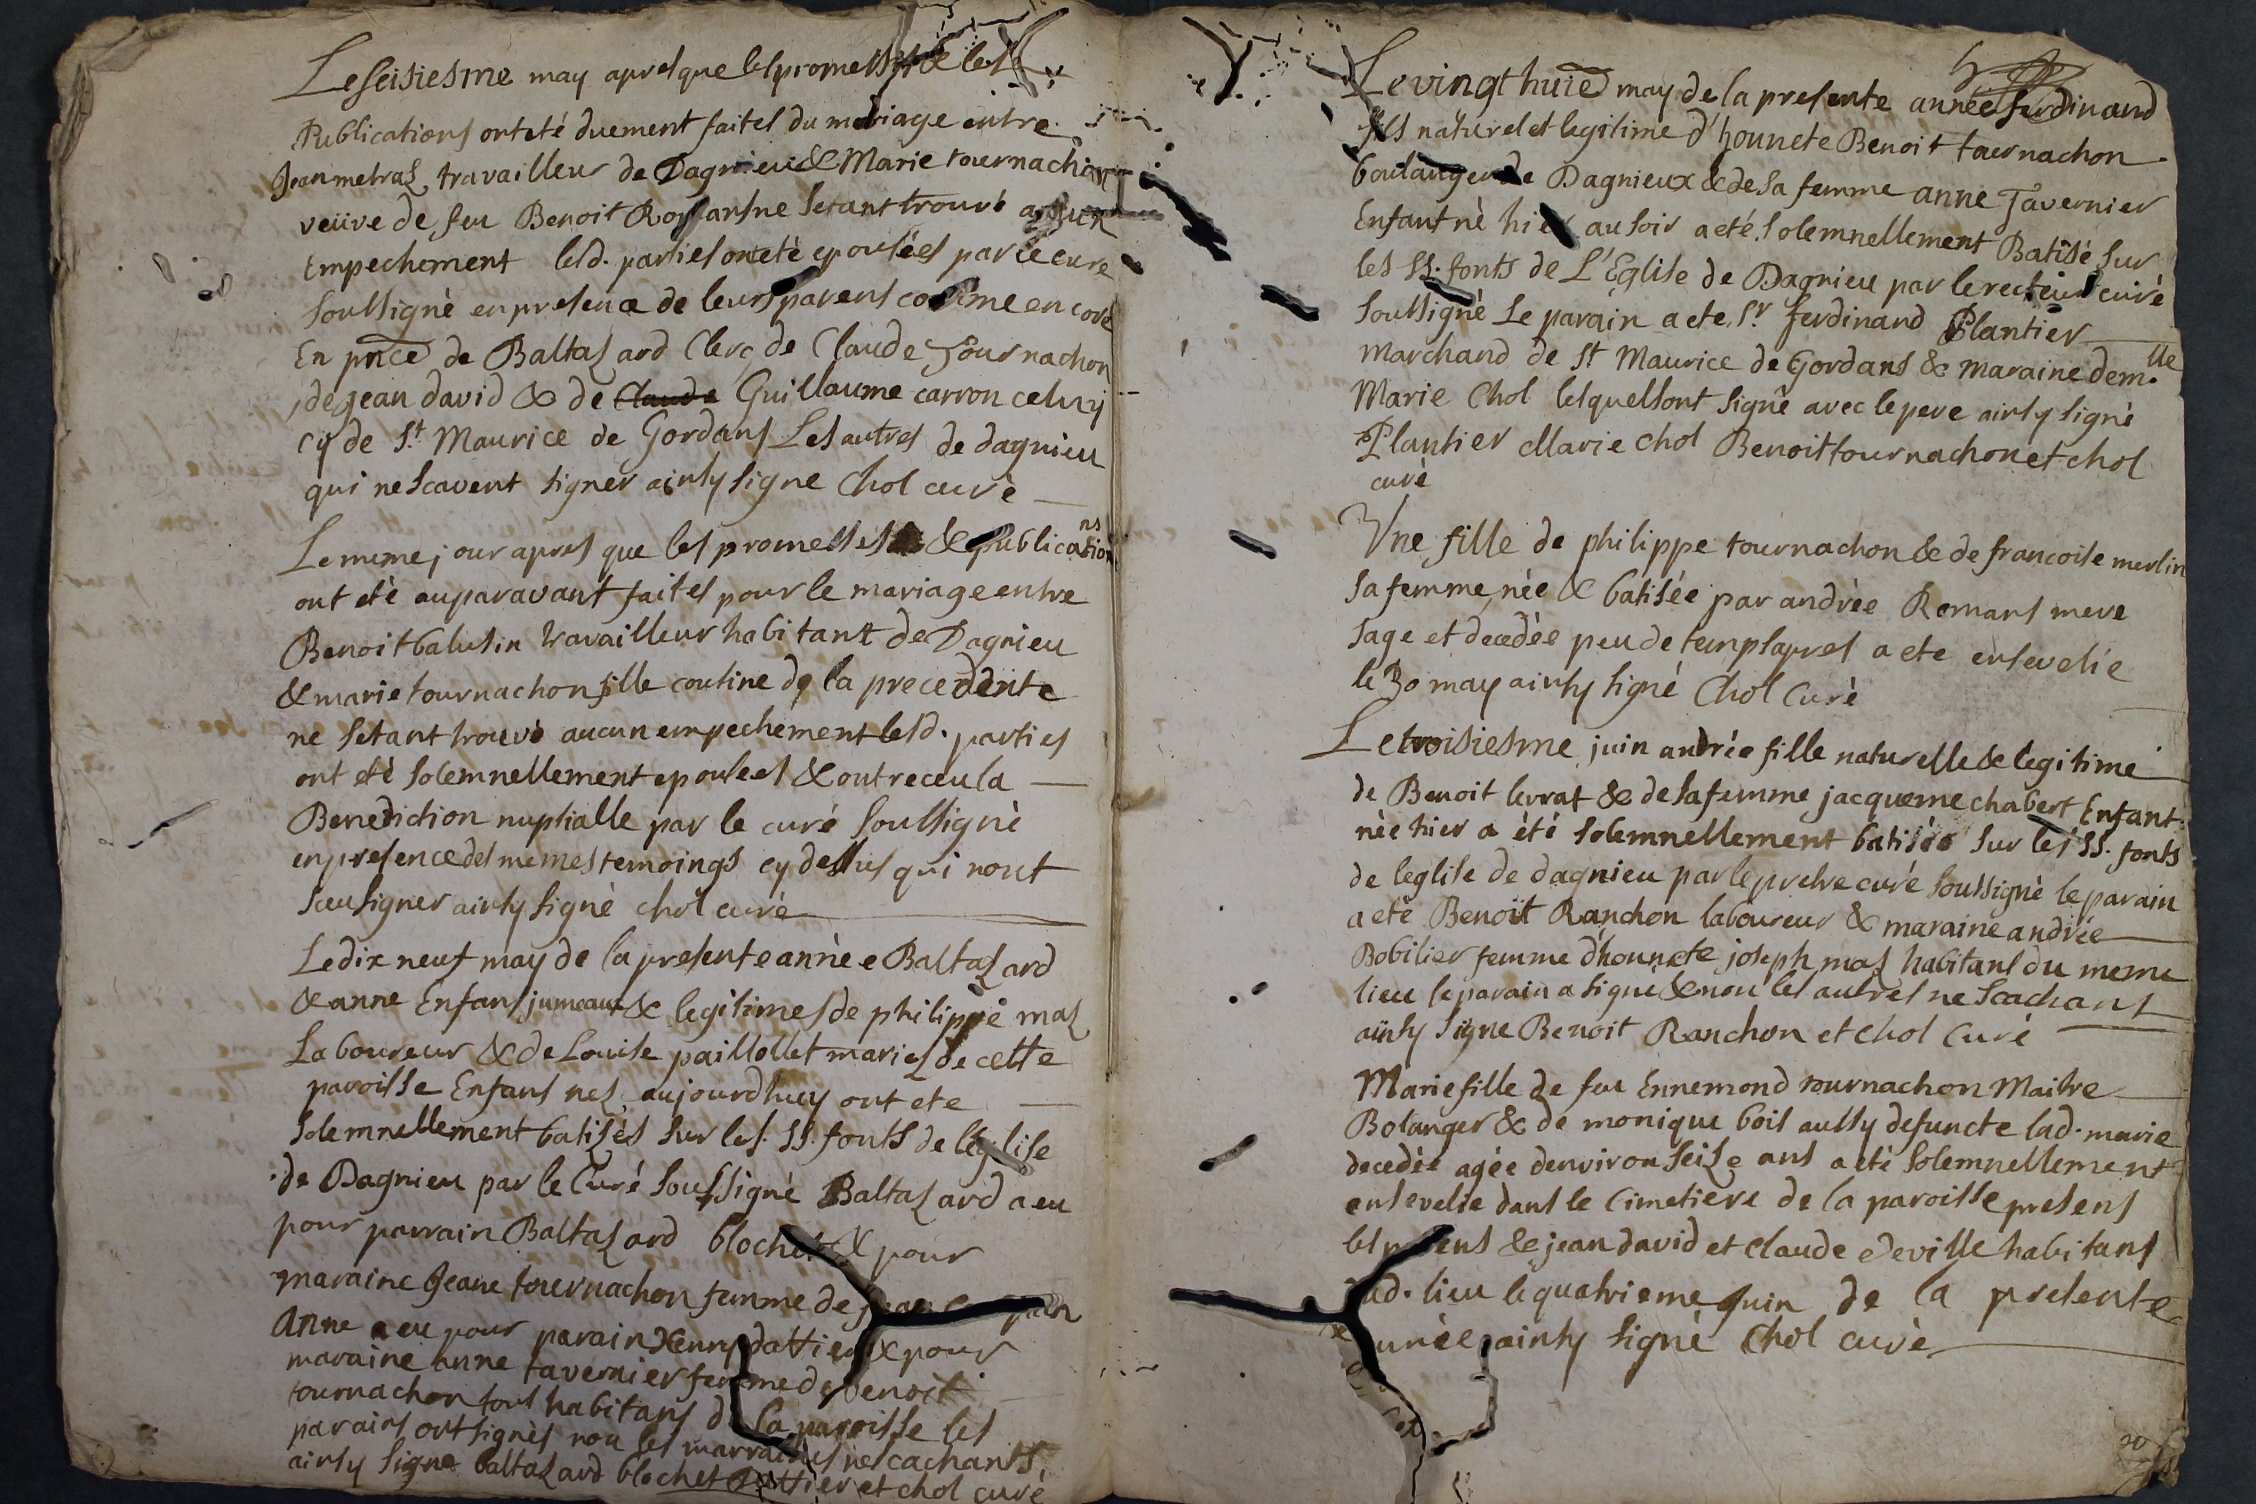 Le seisiesme may apres que les promesses & les
Publications ont eté duement faites du mariage entre
Jean metras travailleur de Dagnieu & Marie tournachon
veüve de feu Benoit Romans ne setant trouvé aucun
Empechement lesd. parties ont etè epousées par le cure
soussignè en presence de leurs parens comme encore
En pnce de Baltasard Clerc de Claude Tournachon
de Jean david & de Claude Guillaume carron celuy
cy de St Maurice de Gordans Les autres de dagnieu
qui ne scavent signer ainsy signe Chol curè
Le meme jour apres que les promesses & publications
ont etè auparavant faites pour le mariage entre
Benoit balusin travailleur habitant de Dagnieu
& marie tournachon fille cousine de la precedente
ne setant trouvè aucun empechement lesd. parties
ont etè solemnellement epousees & ont receu la
Benediction nuptialle par le curé soussignè
en presence des memes temoings cy dessus qui nont
sceu signer ainsy signè chol curè
Le dix neuf may de la presente annèe Baltasard
& anne Enfans jumeaux & legitimes de philippe mas
Laboureur & de Louise paillollet maries de cette
paroisse Enfans nes aujourdhuy ont ete
solemnellement batisès sur les SS. fonts de leglise
de Dagnieu par le Curé soussignè Baltasard a eu
pour parrain Baltasard blochet & pour
maraine Jeane tournachon femme de
Anne a eu pour parain Henry dattier & pour
maraine anne tavernier femme de Benoit
tournachon tous habitans de la paroisse les
parains ont signès non les marraines ne scachants
ainsy signe baltasard blochet dattier et chol curé
5
Le vingt huie may de la presente année ferdinand
fils naturel et legitime d'hounete Benoit tournachon
boulanger de Dagnieux & de sa femme anne Tavernier
Enfant nè hier au soir a eté solemnellement Batisè sur
les SS. fonts de L'Eglise de Dagnieu par le recteur curè
soussigné Le parain a ete Sr ferdinand Plantier
marchand de St Maurice de Gordans & maraine demlle
Marie Chol lesquels ont signé avec le pere ainsy signè
Plantier Marie chol Benoit tournachon et chol
curè
Une fille de philippe tournachon & de francoise merlin
sa femme, née & batisée par andrèe Romans mere
sage et decedèe peu de temps apres a ete ensevelie
le 30 may ainsy signé Chol Curè
Le troisiesme juin andrée fille naturelle & legitime
de Benoit levrat & de sa femme jacqueme chabert Enfant
nèe hier a été solemnellement batisée sur les SS. fonts
de leglise de dagnieu par le pretre curé soussignè le parain
a etè Benoit Ranchon laboureur & maraine andrée
Bobilier femme dhounete joseph mas habitans du meme
lieu le parain a signe & non les autres ne scachans
ainsy signe Benoit Ranchon et chol Curé
Marie fille de feu Ennemond tournachon Maitre
Bolanger & de monique bois aussy defuncte lad. marie
decedée agée denviron seize ans a etè solemnellement
ensevelie dans le Cimetiere de la paroisse presens
les parens & jean david et claude deville habitans
dud. lieu le quatrieme Juin de la presente
année ainsy signè Chol curè